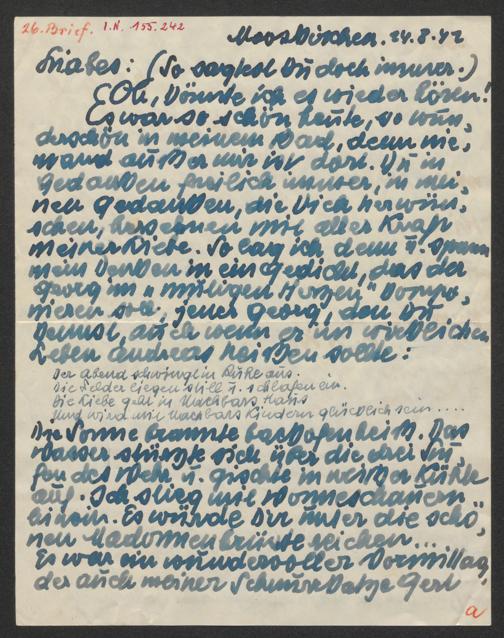 26. Brief. I.N. 155.242
Mooskirchen. 24.8.42
Liabes: (So sagtest Du doch immer.)
(Oh, könnte ich es wieder hören!
Es war so schön heute, so wun-
derschön in meinem Bad, denn nie-
mand außer mir ist dort. Du in
Gedanken freilich immer, in mei-
nen Gedanken, die Dich herwün-
schen, hersehnen mit aller Kraft
meiner Liebe. So lag ich denn u. spann
mein Denken in ein Gedicht, das der
Georg im "mutigen Herzen" kompo-
nieren soll, jener Georg, den Du
kennst, auch wenn er im wirklichen
Leben Andreas heißen sollte:
Der Abend schwingt in Kühle aus.
Die Felder liegen still u. schlafen ein.
Die Liebe geht in Nachbars Haus
Und wird mit Nachbars Kindern glücklich sein....
Die Sonne brannte backofenheiß. Das
Wasser stürzte sich über die drei Stu-
fen des Wehr u. gischte in weißer Kühle
auf. Ich stieg mit Wonneschauern
hinein. Es würde Dir unser die schö-
nen Madonnenbrüste reichen...
Es war ein wundervoller Vormittag,
der auch meiner Gerl
a